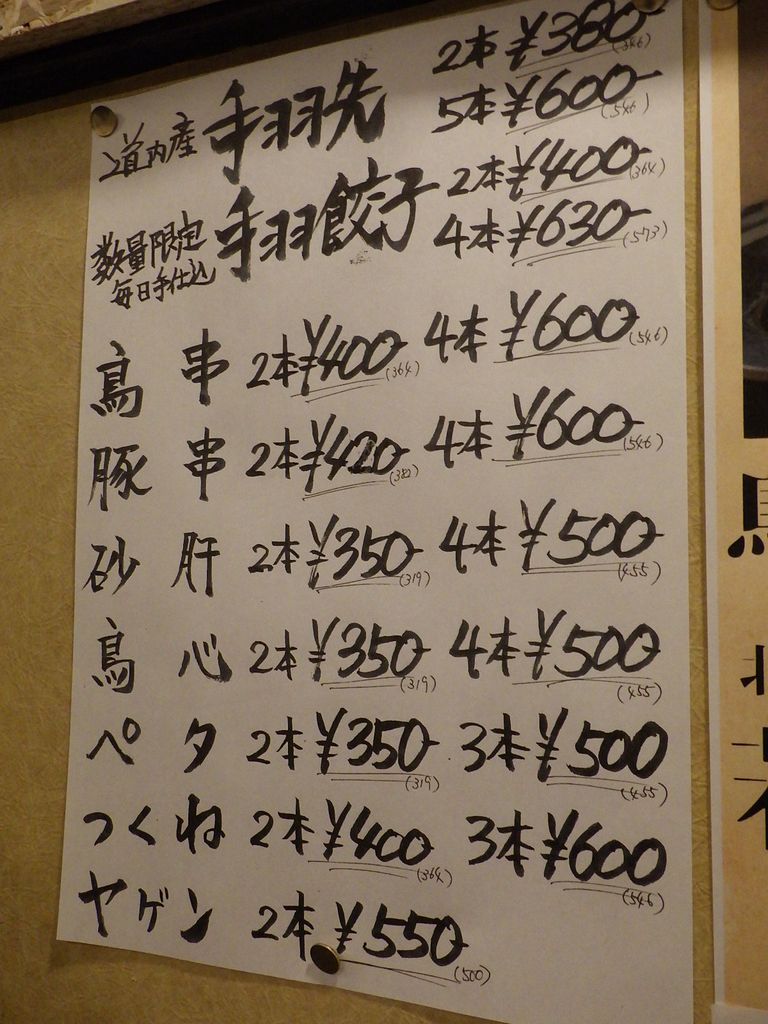 道内産 手羽先 2本 ¥380- (346)
5本 ¥600- (546)
数量限定 毎日手仕込 手羽餃子 2本 ¥400- (364)
4本 ¥630- (573)
鳥串 2本 ¥400- (364) 4本 ¥600- (546)
豚串 2本 ¥420- (382) 4本 ¥600- (546)
砂肝 2本 ¥350- (319) 4本 ¥500- (455)
鳥心 2本 ¥350- (319) 4本 ¥500- (455)
ペタ 2本 ¥350- (319) 3本 ¥500 (455)
つくね 2本 ¥400 (364) 3本 ¥600 (546)
ヤゲン 2本 ¥550- (500)